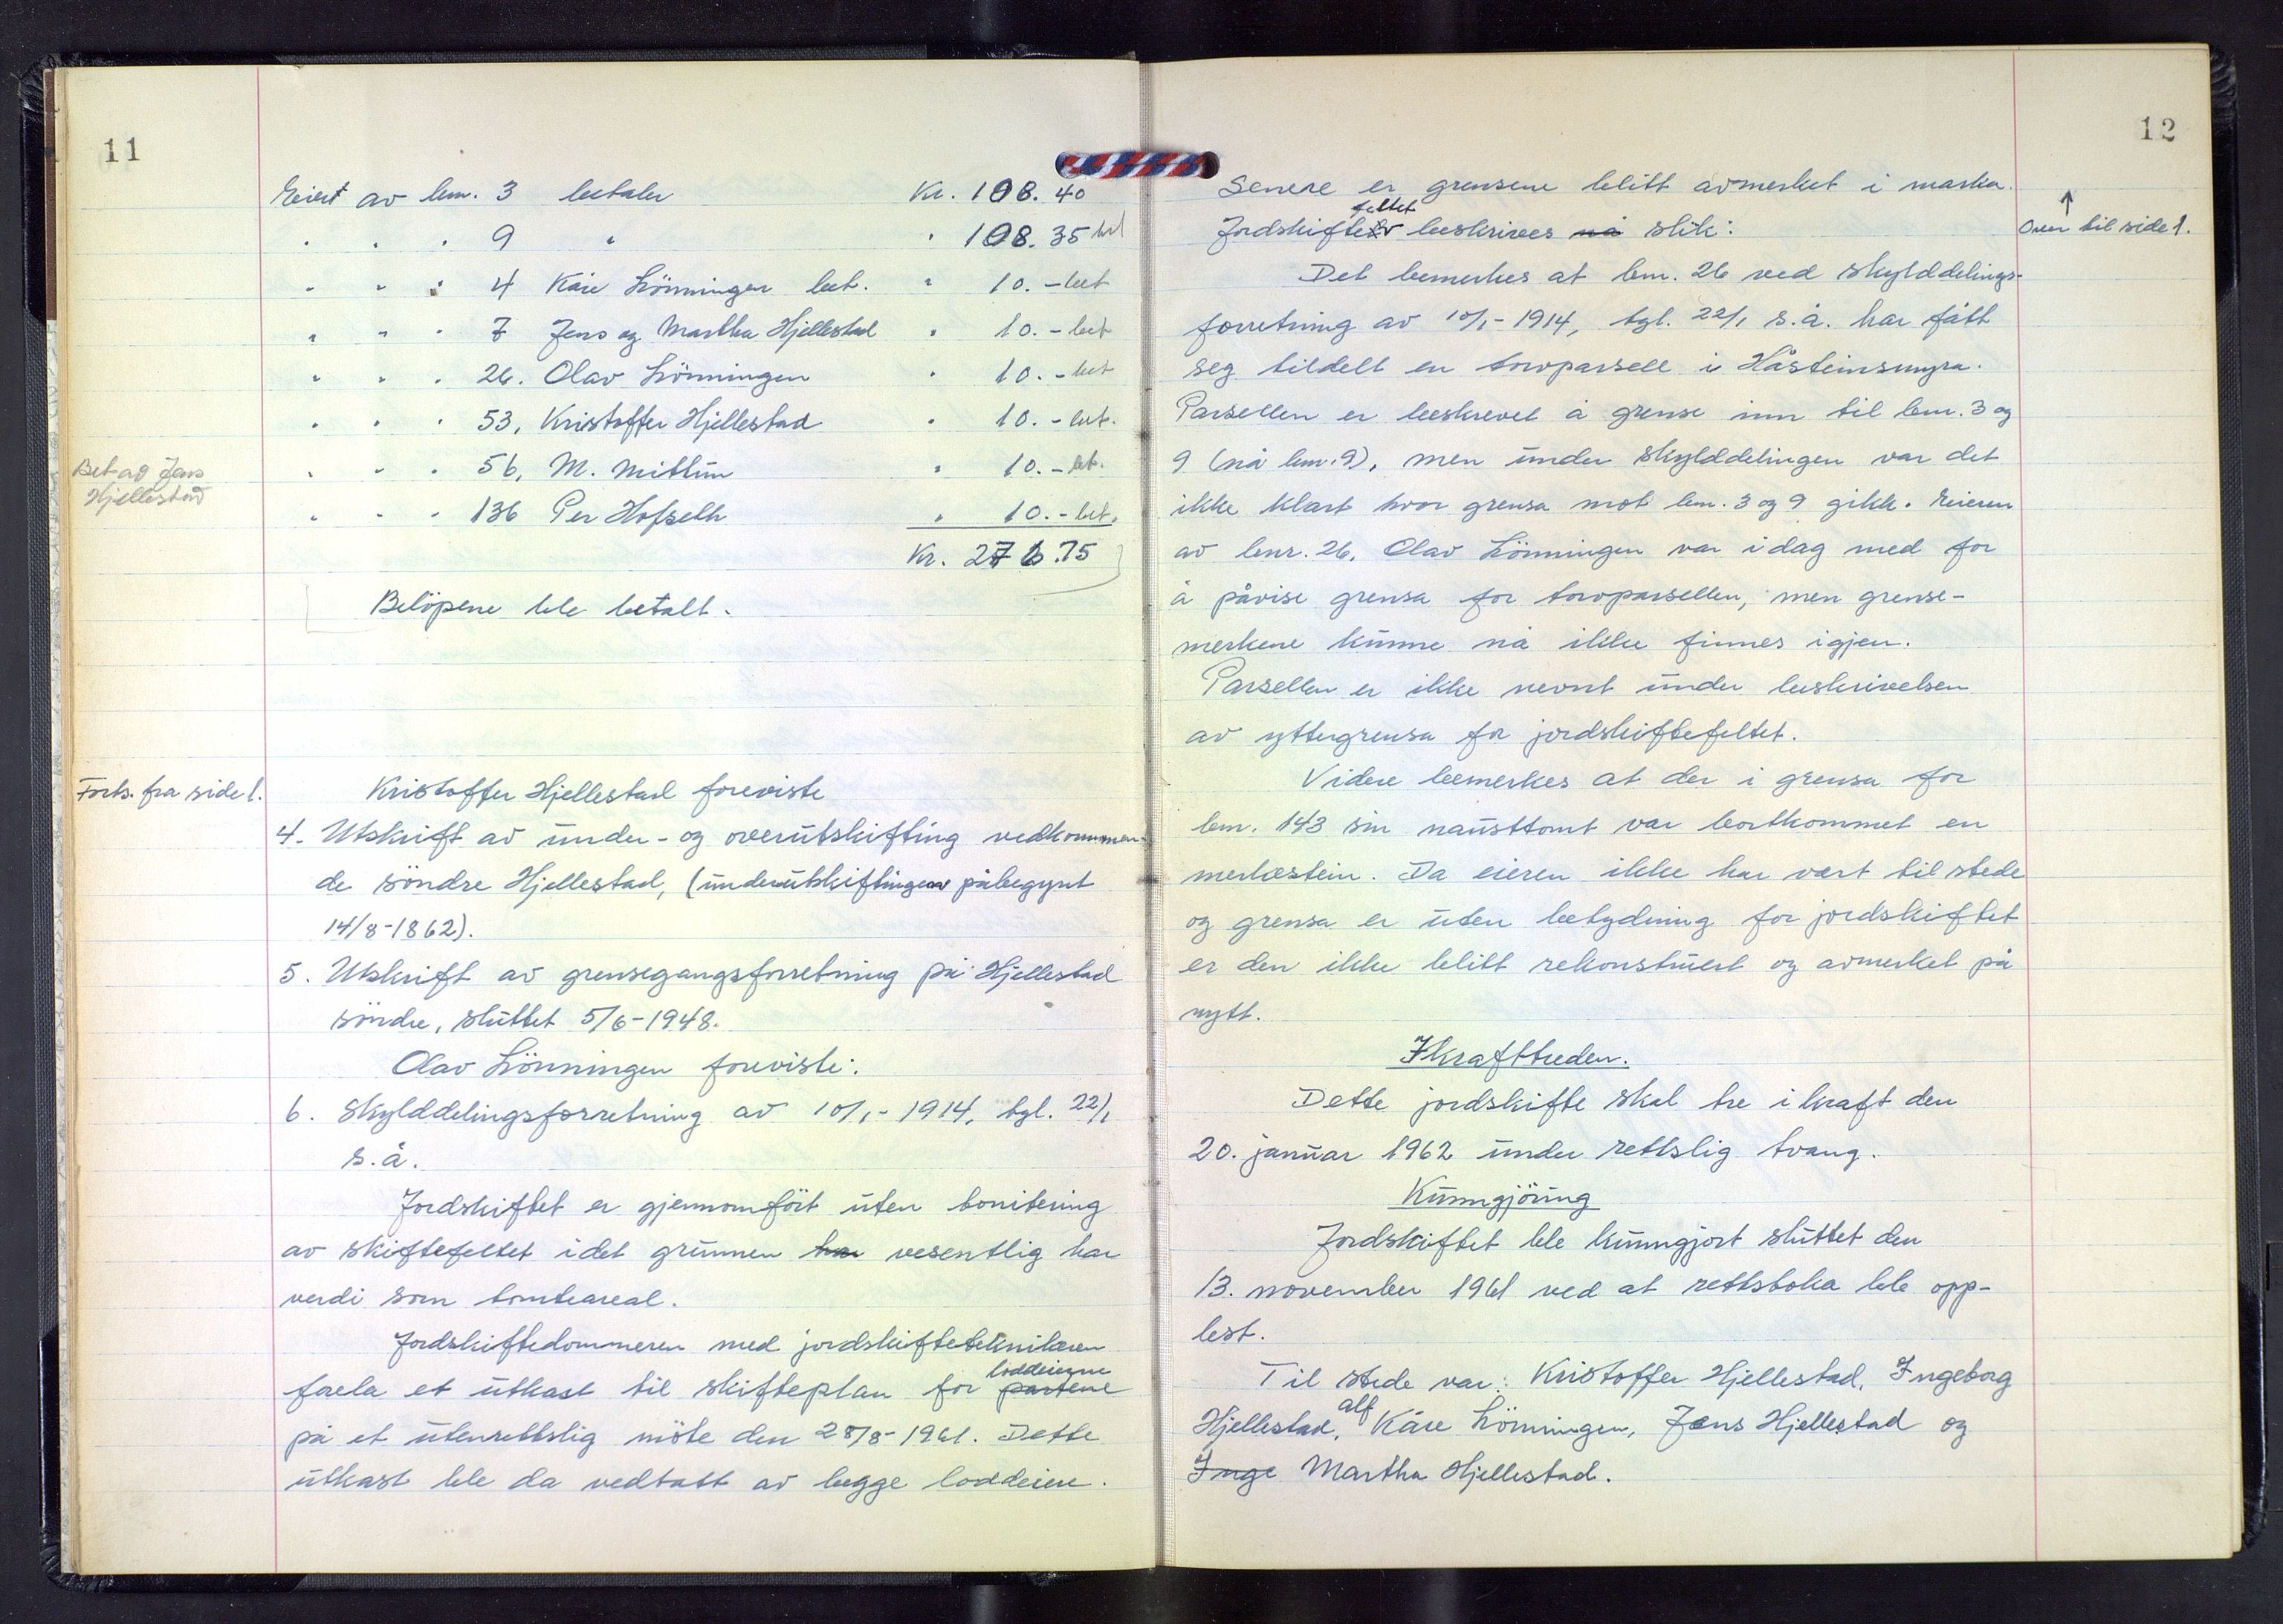 11
Eiert av bnr. 3 betaler Kr. 108.40
" " " 9 " " 108.35 bet
" " " 4 Kåre Lönningen bet. " 10.- bet
" " " 7 Jens og Martha Hjellestad " 10.- bet
" " " 26. Olav Lönningen " 10.- bet
" " " 53, Kristoffer Hjellestad " 10.- bet.
Bet av Jens
Hjellestad
" " " 56, M. Mittun " 10.- bet.
" " " 136 Per Hofseth " 10.- bet.
Kr. 276.75
Belöpene ble betalt.
Forts. fra side 1.
Kristoffer Hjellestad foreviste
4. Utskrift av under- og overutskifting vedkommen-
de söndre Hjellestad, (underutskiftingen påbegynt
14/8-1862).
5. Utskrift av grensegangsforretning på Hjellestad
söndre, sluttet 5/6-1948.
Olav Lönningen foreviste:
6. Skylddelingsforretning av 10/1-1914, tgl. 22/1
s.å.
Jordskiftet er gjennomfört uten bonitering
av skiftefeltet idet grunnen har vesentlig har
verdi som tomteareal.
Jordskiftedommeren med jordskifteteknikeren
loddeierne
förela et utkast til skifteplan for partene
på et utenrettslig möte den 28/8-1961. Dette
utkast ble da vedtatt av begge loddeiere.
12
Senere er grensene blitt avmerket i marka.
Over til side 1.
feltet
Jordskifte beskrives nå slik:
Det bemerkes at bnr. 26 ved skylddelings-
forretning av 10/1-1914, tgl. 22/1 s.å. har fått
seg tildelt en torvparsell i Håsteinsmyra.
Parsellen er beskrevet å grense inn til bnr. 3 og
9 (nå bnr. 9), men under skylddelingen var det
ikke klart hvor grensa mot bnr. 3 og 9 gikk. Eieren
av bnr. 26, Olav Lönningen var idag med for
å påvise grensa for torvparsellen, men grense-
merkene kunne nå ikke finnes igjen.
Parsellen er ikke nevnt under beskrivelsen
av yttergrensa for jordskiftefeltet.
Videre bemerkes at der i grensa for
bnr. 143 sin nausttomt var bortkommet en
merkestein. Da eieren ikke har vært til stede
og grensa er uten betydning for jordskiftet
er den ikke blitt rekonstruert og avmerket på
nytt.
Ikrafttreden.
Dette jordskifte skal tre i kraft den
20. januar 1962 under rettslig tvang.
Kunngjöring
Jordskiftet ble kunngjort sluttet den
13. november 1961 ved at rettsboka ble opp-
lest.
Til stede var: Kristoffer Hjellestad, Ingeborg
alf
Hjellestad, Kåre Lönningen, Jens Hjellestad og
Inge Martha Hjellestad.